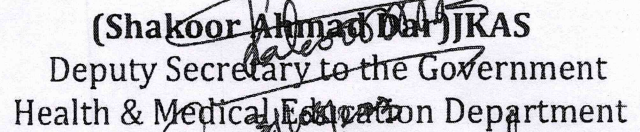 (Shakoor Ahmad Dar)JKAS
Deputy Secretary to the Government
Health & Medical Education Department